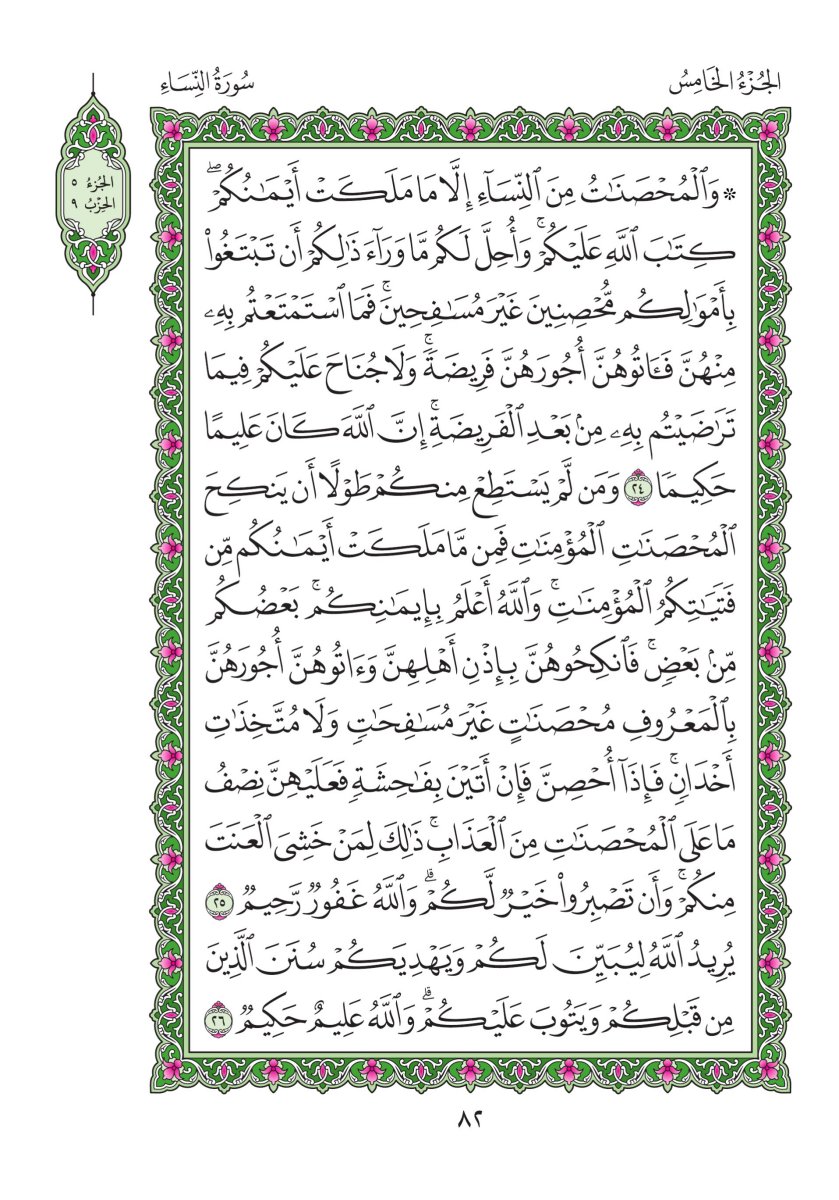 الجُزْءُ الخَامِسُ
سُورَةُ النِّسَاءِ
الجُزءُ ٥
الحِزْبُ ٩
* وَٱلْمُحْصَنَٰتُ مِنَ ٱلنِّسَآءِ إِلَّا مَا مَلَكَتْ أَيْمَٰنُكُمْۖ
كِتَٰبَ ٱللَّهِ عَلَيْكُمْۚ وَأُحِلَّ لَكُم مَّا وَرَآءَ ذَٰلِكُمْ أَن تَبْتَغُوا۟
بِأَمْوَٰلِكُم مُّحْصِنِينَ غَيْرَ مُسَٰفِحِينَۚ فَمَا ٱسْتَمْتَعْتُم بِهِۦ
مِنْهُنَّ فَـَٔاتُوهُنَّ أُجُورَهُنَّ فَرِيضَةًۚ وَلَا جُنَاحَ عَلَيْكُمْ فِيمَا
تَرَٰضَيْتُم بِهِۦ مِنۢ بَعْدِ ٱلْفَرِيضَةِۚ إِنَّ ٱللَّهَ كَانَ عَلِيمًا
حَكِيمًا ٢٤ وَمَن لَّمْ يَسْتَطِعْ مِنكُمْ طَوْلًا أَن يَنكِحَ
ٱلْمُحْصَنَٰتِ ٱلْمُؤْمِنَٰتِ فَمِن مَّا مَلَكَتْ أَيْمَٰنُكُم مِّن
فَتَيَٰتِكُمُ ٱلْمُؤْمِنَٰتِۚ وَٱللَّهُ أَعْلَمُ بِإِيمَٰنِكُمۚ بَعْضُكُم
مِّنۢ بَعْضٍۚ فَٱنكِحُوهُنَّ بِإِذْنِ أَهْلِهِنَّ وَءَاتُوهُنَّ أُجُورَهُنَّ
بِٱلْمَعْرُوفِ مُحْصَنَٰتٍ غَيْرَ مُسَٰفِحَٰتٍ وَلَا مُتَّخِذَٰتِ
أَخْدَانٍۚ فَإِذَآ أُحْصِنَّ فَإِنْ أَتَيْنَ بِفَٰحِشَةٍ فَعَلَيْهِنَّ نِصْفُ
مَا عَلَى ٱلْمُحْصَنَٰتِ مِنَ ٱلْعَذَابِۚ ذَٰلِكَ لِمَنْ خَشِىَ ٱلْعَنَتَ
مِنكُمْۚ وَأَن تَصْبِرُوا۟ خَيْرٌ لَّكُمْۗ وَٱللَّهُ غَفُورٌ رَّحِيمٌ ٢٥
يُرِيدُ ٱللَّهُ لِيُبَيِّنَ لَكُمْ وَيَهْدِيَكُمْ سُنَنَ ٱلَّذِينَ
مِن قَبْلِكُمْ وَيَتُوبَ عَلَيْكُمْۗ وَٱللَّهُ عَلِيمٌ حَكِيمٌ ٢٦
٨٢